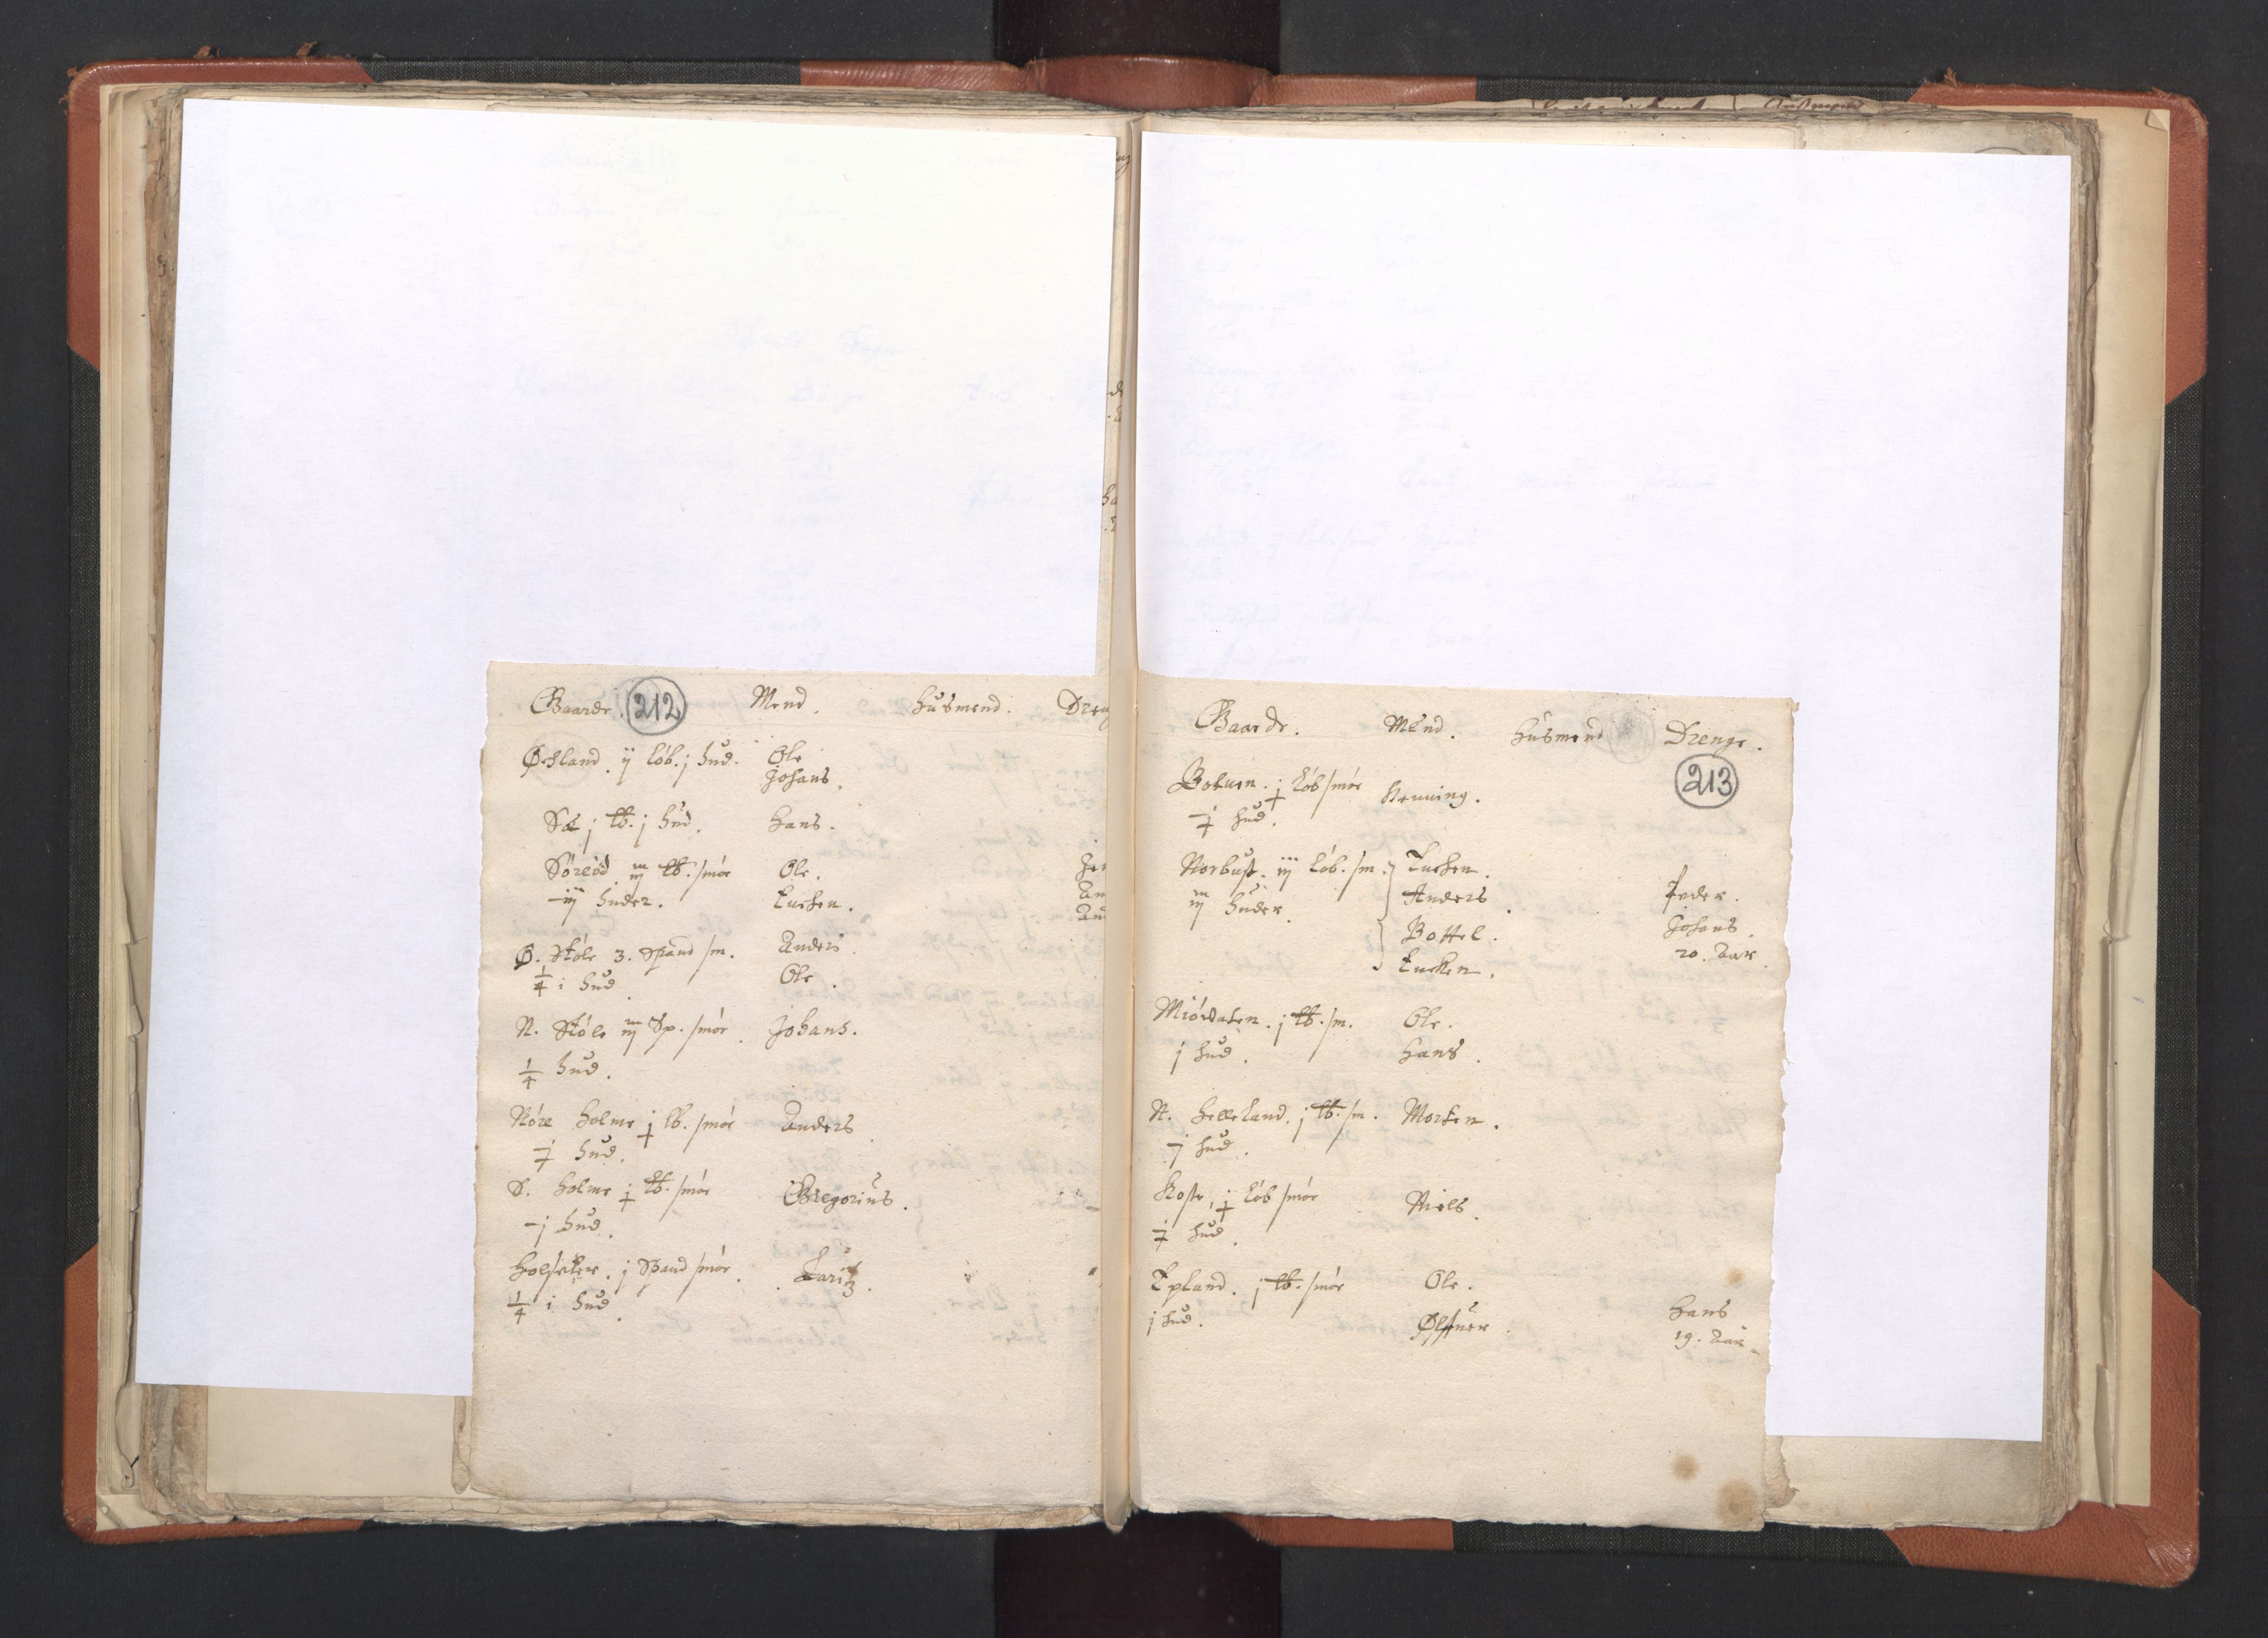 Gaarde. 212 Mend. Husmend. Dreng
Øcsland. ij løb. j hud. Ole
Johans.
Sæ j lb. j hud. Hans.
Søreid iij lb. smør Ole.
iij huder. Lucken.
Ø. Støle 3. Spand sm. Anders.
1/4 i hud. Ole.
N. Støle iij Sp. smør. Johans.
1/4 hud.
Nøre Holme j lb. smør Anders.
j hud.
S. Holme j lb. smør Gregorius.
j hud.
Holseter. j Spand smør. Laritz.
1/4 i hud.
Gaarde. Mend. Husmend Drenge.
213
Botnen. j løb smør Henning.
j hud.
Norbust. iij løb. sm. Lucken.
iij huder. Anders. Peder.
Bottel. Johans.
Lucken. 20. Aar.
Miørdalen. j lb. sm. Ole.
j hud. Hans.
N. Helleland. j lb. sm. Morten.
j hud.
Roste, j løb smør Niels.
j hud.
Epland. j lb. smør Ole.
j hud. Hans
19. Aar